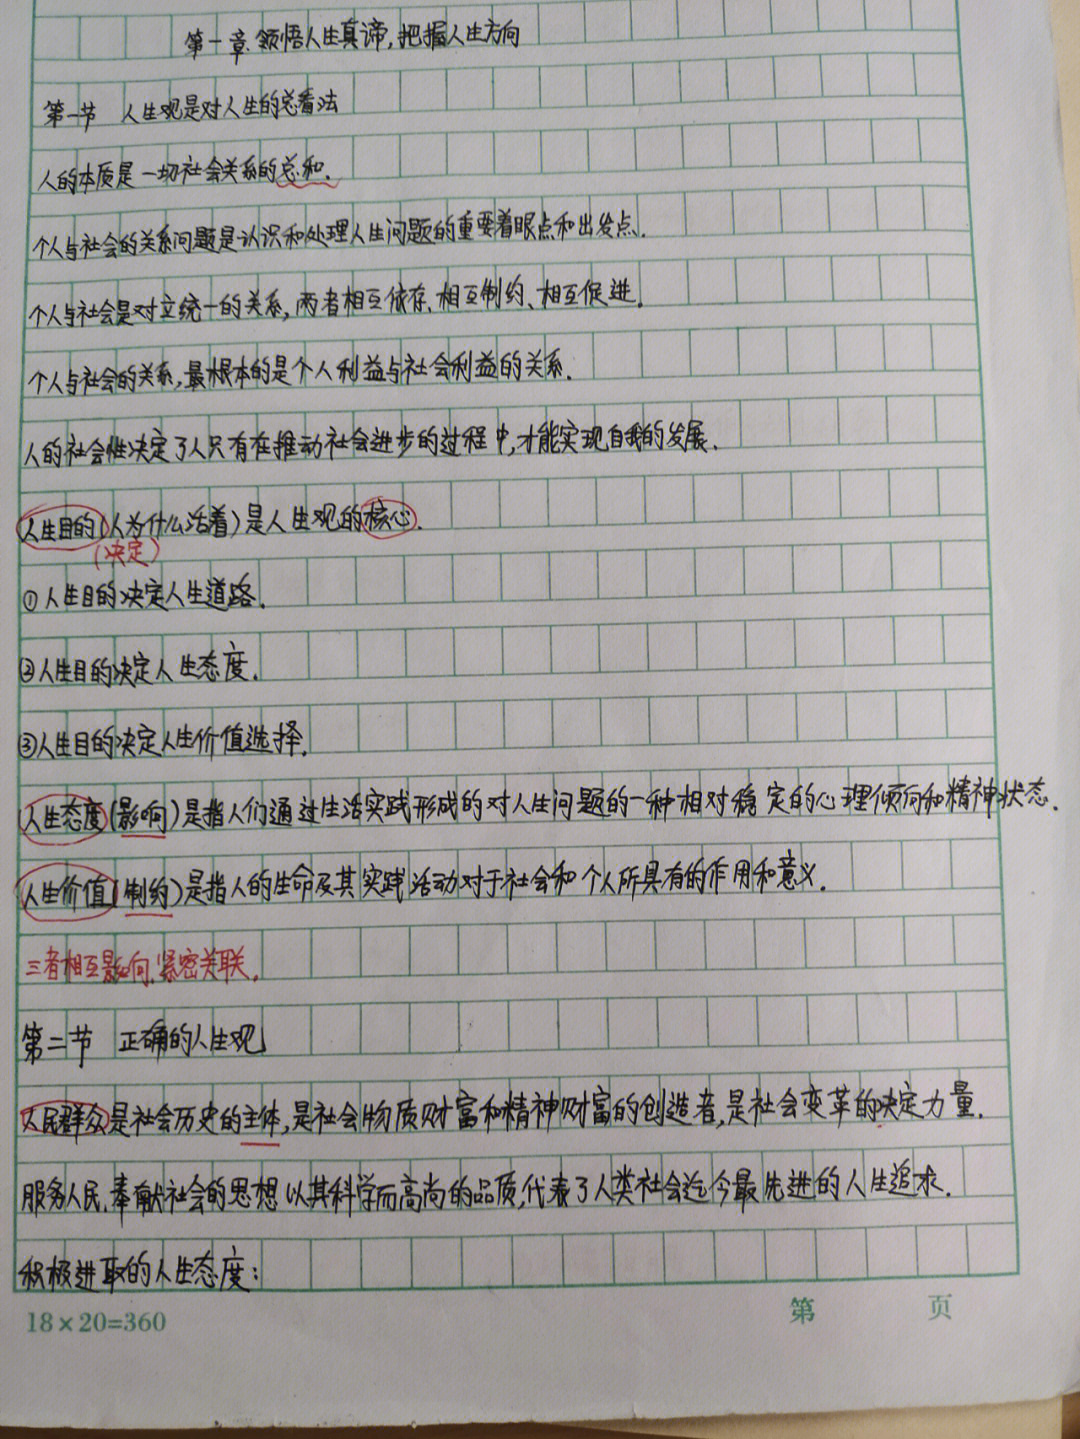 第一章.领悟人生真谛,把握人生方向
第一节 人生观是对人生的总看法
人的本质是一切社会关系的总和.
个人与社会的关系问题是认识和处理人生问题的重要着眼点和出发点.
个人与社会是对立统一的关系,两者相互依存、相互制约、相互促进.
个人与社会的关系,最根本的是个人利益与社会利益的关系.
人的社会性决定了人只有在推动社会进步的过程中,才能实现自我的发展.
人生目的(人为什么活着)是人生观的核心.
(决定)
①人生目的决定人生道路.
②人生目的决定人生态度.
③人生目的决定人生价值选择.
人生态度(影响)是指人们通过生活实践形成的对人生问题的一种相对稳定的心理倾向和精神状态.
人生价值(制约)是指人的生命及其实践活动对于社会和个人所具有的作用和意义.
三者相互影响、紧密关联.
第二节 正确的人生观
人民群众是社会历史的主体,是社会物质财富和精神财富的创造者,是社会变革的决定力量.
服务人民、奉献社会的思想以其科学而高尚的品质,代表了人类社会迄今最先进的人生追求.
积极进取的人生态度:
18×20=360 第 页